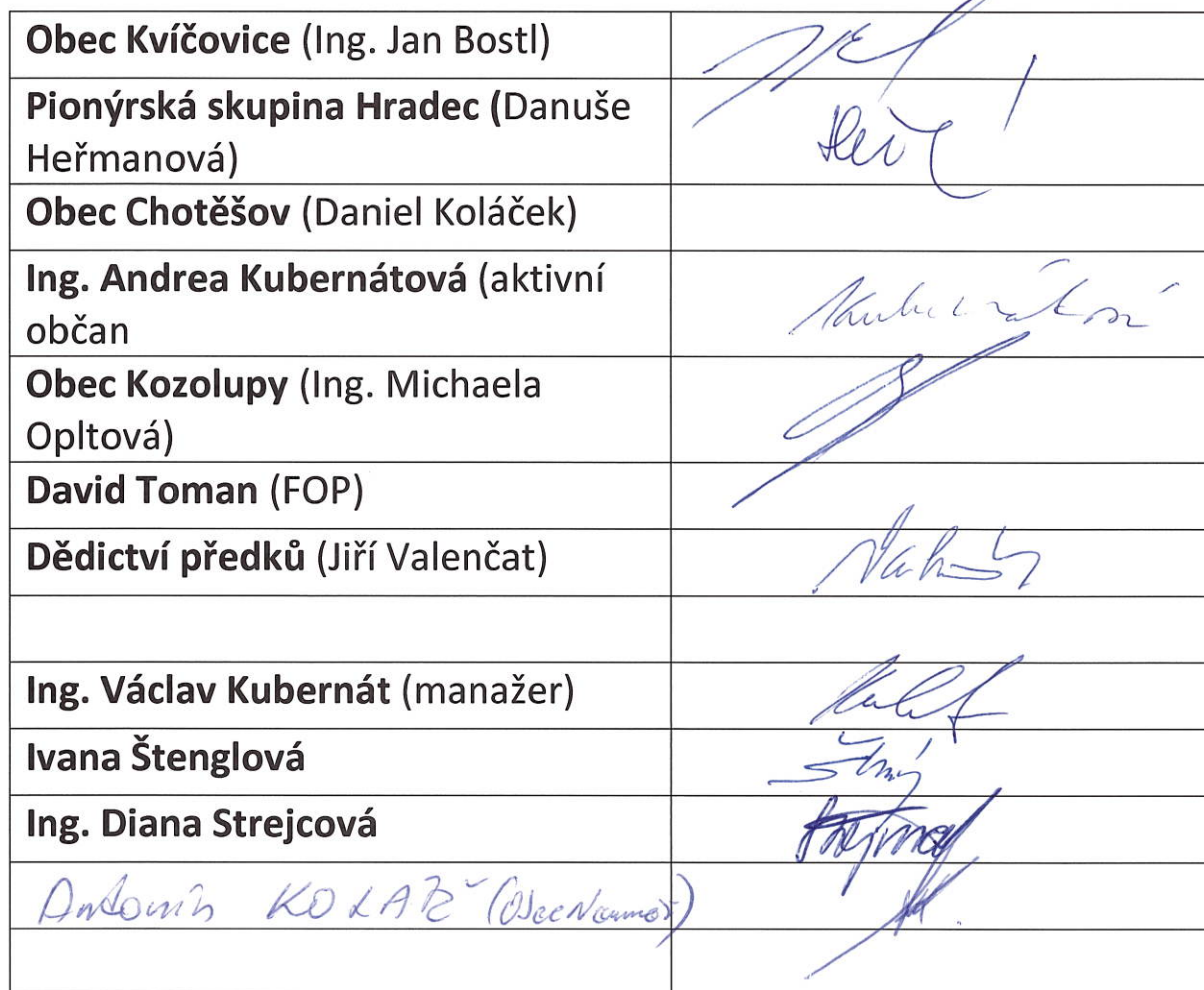 Obec Kvíčovice (Ing. Jan Bostl)
Pionýrská skupina Hradec (Danuše
Heřmanová)
Obec Chotěšov (Daniel Koláček)
Ing. Andrea Kubernátová (aktivní
občan
Kubernátová
Obec Kozolupy (Ing. Michaela
Opltová)
David Toman (FOP)
Dědictví předků (Jiří Valenčat)
Ing. Václav Kubernát (manažer)
Ivana Štenglová
Ing. Diana Strejcová
Antonín KOLAŘ (Obec